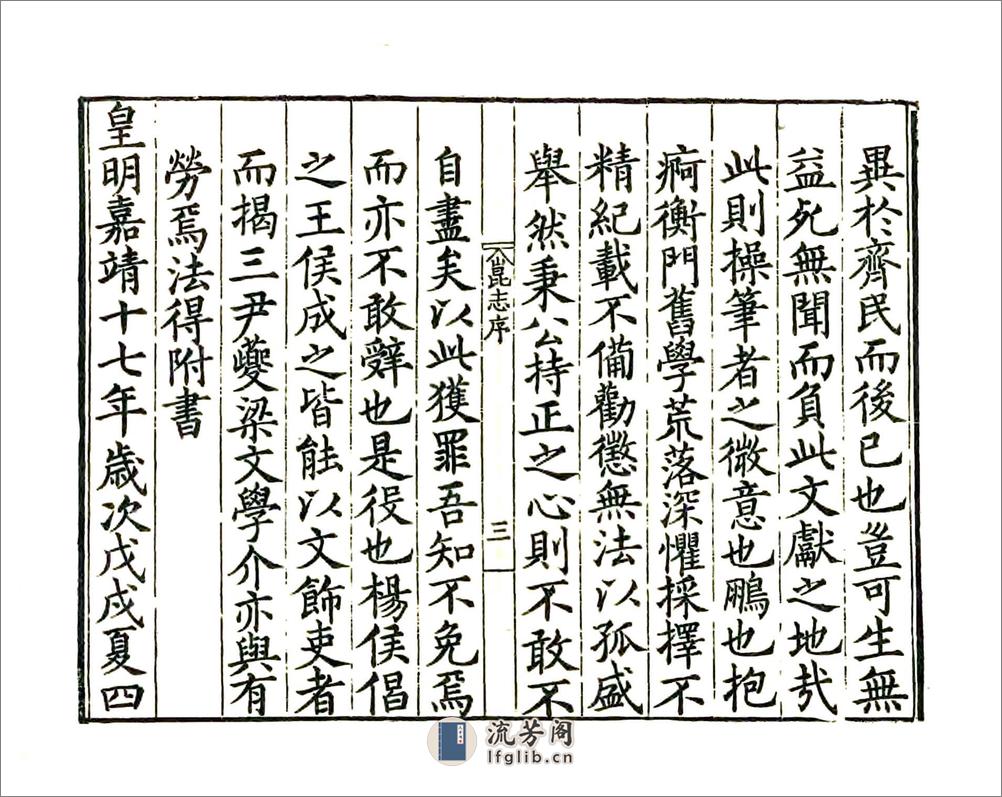 異於齊民而後已也豈可生無
益死無聞而負此文獻之地㢤
此則操筆者之微意也鵬也抱
痾衡門舊學荒落深懼採擇不
精紀載不備勸懲無法以孤盛
舉然秉公持正之心則不敢不
崑志序
三
自盡矣以此獲罪吾知不免焉
而亦不敢辭也是役也楊侯倡
之王侯成之皆能以文飾吏者
而揭三尹夔梁文學介亦與有
勞焉法得附書
皇明嘉靖十七年歲次戊戌夏四
流芳阁
lfglib.cn